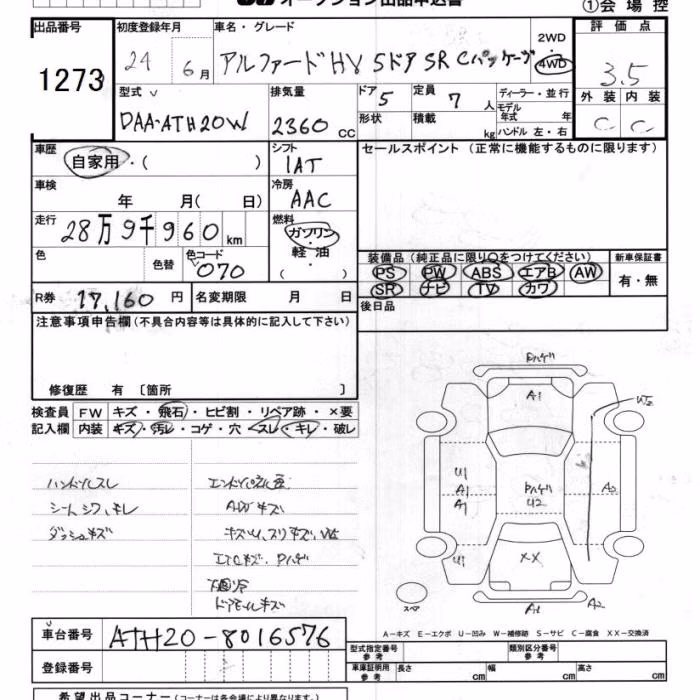 オークション出品申込書
①会場控
出品番号 初度登録年月 車名・グレード 評価点
1273 24 6月 アルファードHV 5ドア SR Cパッケージ 2WD 4WD 3.5
型式 排気量 ドア 定員 ディーラー・並行 外装 内装
DAA-ATH20W 2360 CC 5 7人 モデル年式 年 C C
形状 積載 kg ハンドル 左・右
車歴 シフト セールスポイント (正常に機能するものに限ります)
自家用・( ) IAT
車検 冷房
年 月( 日) AAC
走行 燃料
28万9千960km ガソリン・軽油・( )
色 色替 色コード 070
装備品 (純正品に限り○をつけてください) 新車保証書
PS PW ABS エアB AW 有・無
SR ナビ TV カワ
R券 17,160円 名変期限 月 日 後日品
注意事項申告欄 (不具合内容等は具体的に記入して下さい)
修復歴 有 [箇所 ]
検査員 FW キズ・飛石・ヒビ割・リペア跡・×要
記入欄 内装 キズ・汚レ・コゲ・穴・スレ・キレ・破レ
ハンドルスレ
シートシワ、キレ
ダッシュキズ
AWキズ
ETCキズ、Pハゲ
下回リ
ドアモールキズ
Pハゲ
A1
U2
U1
A1
A1
Pハゲ
U2
A2
U1
XX
スペア
A1
A2
A-キズ E-エクボ U-凹み W-補修跡 S-サビ C-腐食 XX-交換済
車台番号 ATH20-8016576 型式指定番号 参考 類別区分番号 参考
登録番号 車庫証明用 参考 長さ cm 幅 cm 高さ cm
希望出品コーナー (コーナーは各会場により異なります。)